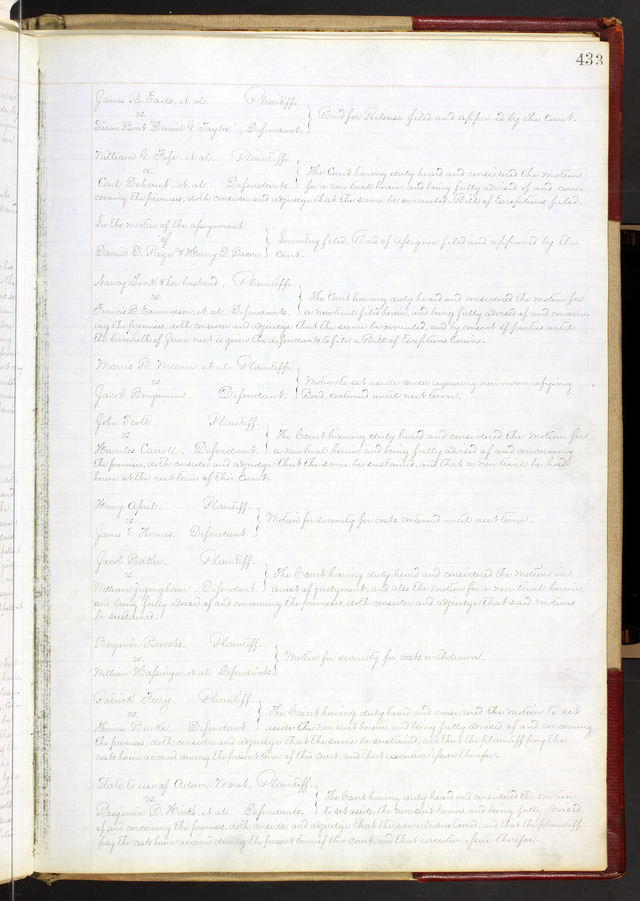 433
James B. Eads, et al. Plaintiffs.
vs.
Steam Boat "Daniel G. Taylor", Defendant.
Bond for Release filed and approved by the Court.
William G. Fife, et al. Plaintiffs.
vs.
Carl et al. Defendants.
The Court having duly heard and considered the motion
for a new trial herein, and being fully advised of and con-
cerning the premises, doth consider and adjudge that the same be overruled. Bill of Exceptions filed.
In the matter of the assignment
of
Daniel D. Page & Henry D. Bacon
Inventory filed. Bond of Assignee filed and approved by the
Court.
Nancy & her husband, Plaintiffs.
vs.
Francis B. Edmondson, et al. Defendants.
The Court having duly heard and considered the motion for
a new trial filed herein, and being fully advised of and concern-
ing the premises, doth consider and adjudge that the same be overruled, and by consent of parties until
the twentieth of June next is given the defendants to file a Bill of Exceptions herein.
Morris B. Mann, et al. Plaintiffs.
vs.
Jacob Benjamin. Defendant.
Motion to set aside order requiring new indemnifying
Bond, continued until next term.
John Scott. Plaintiff.
vs
Hercules Carroll, Defendant.
The Court having duly heard and considered the motion for
a new trial herein and being fully advised of and concerning
the premises, doth consider and adjudge that the same be sustained, and that a new trial be had
herein at the next term of this Court.
Henry April. Plaintiff.
vs.
James S. Thomas. Defendant.
Motion for security for costs continued until next term.
Jacob Baker. Plaintiff.
vs.
William Defendant.
The Court having duly heard and considered the motion in
arrest of judgment, and also the motion for a new trial herein,
and being fully advised of and concerning the premises, doth consider and adjudge that said motions
be sustained.
Benjamin Plaintiff.
vs.
William Hassinger, et al. Defendants.
Motion for security for costs withdrawn.
Patrick Plaintiff.
vs.
Thomas Burke. Defendant.
The Court having duly heard and considered the motion to set
aside the non suit herein, and being fully advised of and concerning
the premises, doth consider and adjudge that the same be sustained, and that the plaintiff pay the
costs herein accrued during the present term of this court, and that execution issue therefor.
State to use of Adam Plaintiff.
vs.
Benjamin B. Hicks, et al. Defendants.
The Court having duly heard and considered the motion
to set aside the non suit herein, and being fully advised
of and concerning the premises, doth consider and adjudge that the same be sustained, and that the plaintiff
pay the costs herein accrued during the present term of this court, and that execution issue therefor.